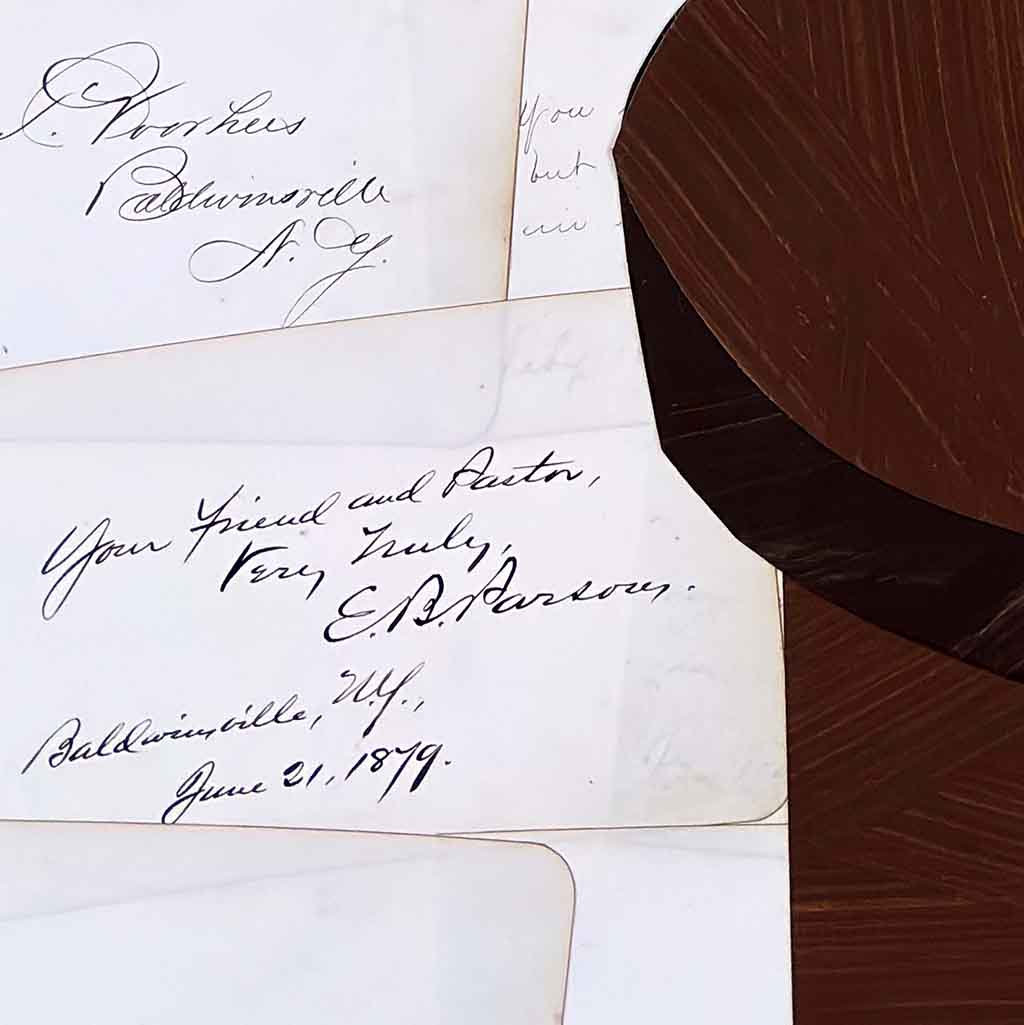 I. Voorhees
Baldwinsville
N. Y.
You
but
Your Friend and Pastor,
Very Truly,
E. B. Parsons.
Baldwinsville, N.Y.,
June 21, 1879.